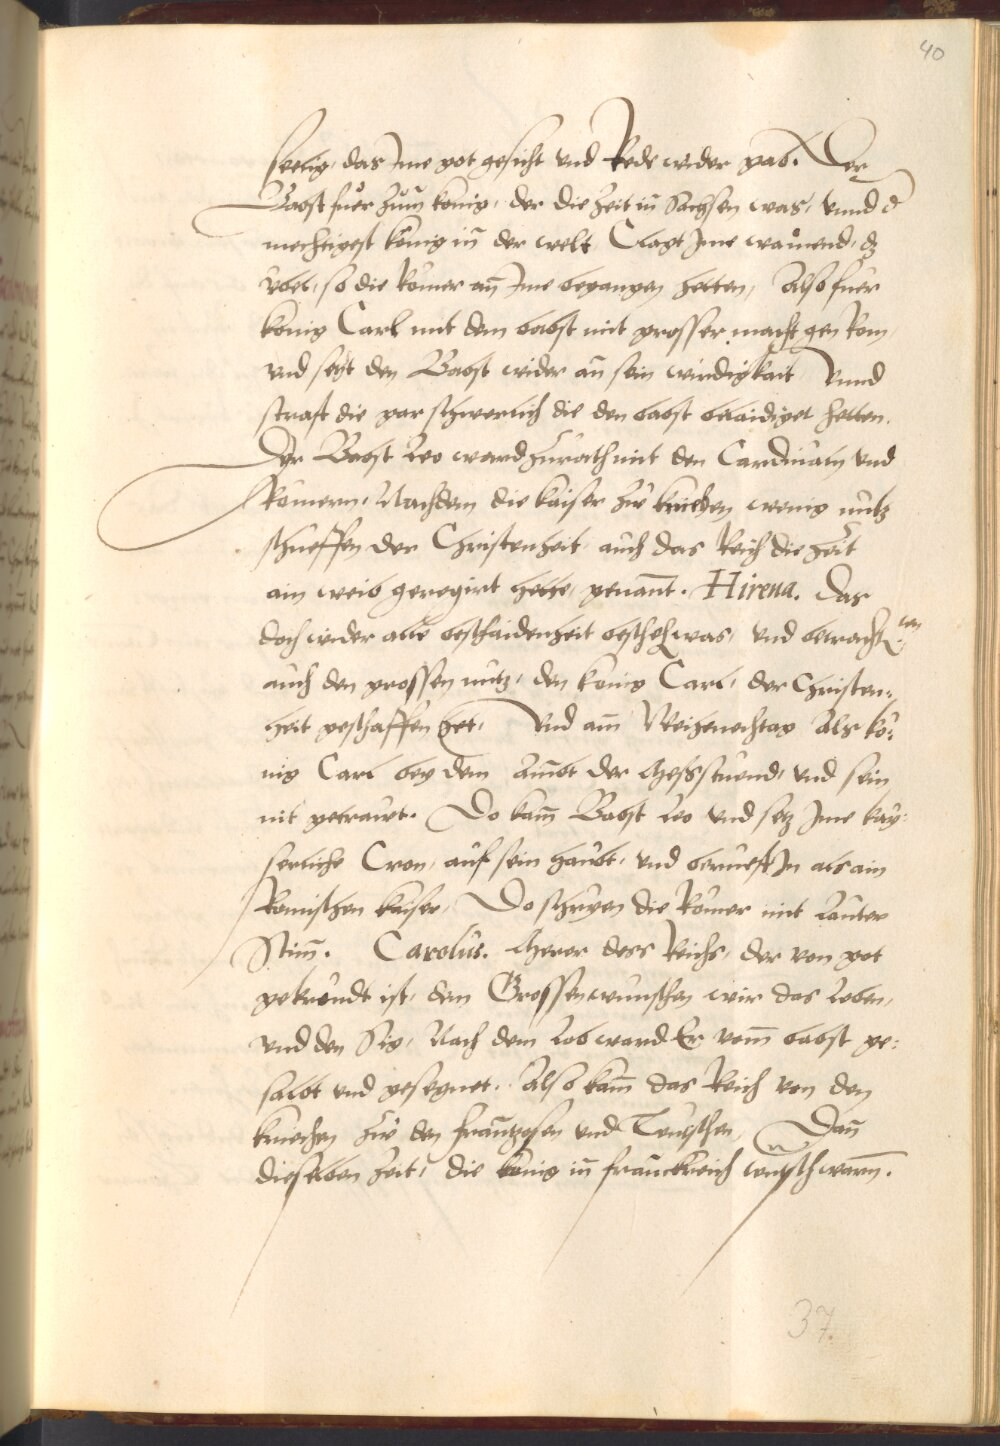 40
seelig, das Ime got gesicht und Rede wider gab. Der
Babst fuer zum konig, der die Zeit in Sachsen was, unnd d
mechtigest konig in der welt Clagt Ime wainend, dz
ubel, so die Romer an Ime begangen hetten, Also fuer
konig Carl mit dem babst mit grosser macht gen Rom
und setzt den Babst wider an sein wirdigkait Unnd
straft die gar schwerlich die den babst belaidiget hetten.
Der Babst Leo ward Zurath mit den Cardinaln und
Romern, Nachdem die kaiser zu kriechen wenig nutz
schueffen der Christenheit, auch das Reich die Zeit
ain weib geregirt hette, genant. Hirena. Das
doch wider alle beschaidenheit beschehen was, und betrachten
auch den grossen nutz, den konig Carl, der Christen:
heit geschaffen het, Und am Weihenechtag Als ko:
nig Carl bey dem Ambt der Mess stuend, und sein
nit getrawt. Do kam Babst Leo und setz Ime kay:
serliche Cron, auf sein haubt, und beruefft In als ain
Romischen kaiser, Do schryen die Romer mit lauter
Stim. Carolus. Merer dess Reichs, der von got
gekröndt ist, dem Grossen wunschen wir das Leben,
und den Sig, Nach dem Lob ward Er vom babst ge:
salbt und gesegnet. Also kam das Reich von den
kriechen Zu den frantzosen und Teutschen, Dan
dieselben Zeit, die konig in franckreich teutsch warn.
37.